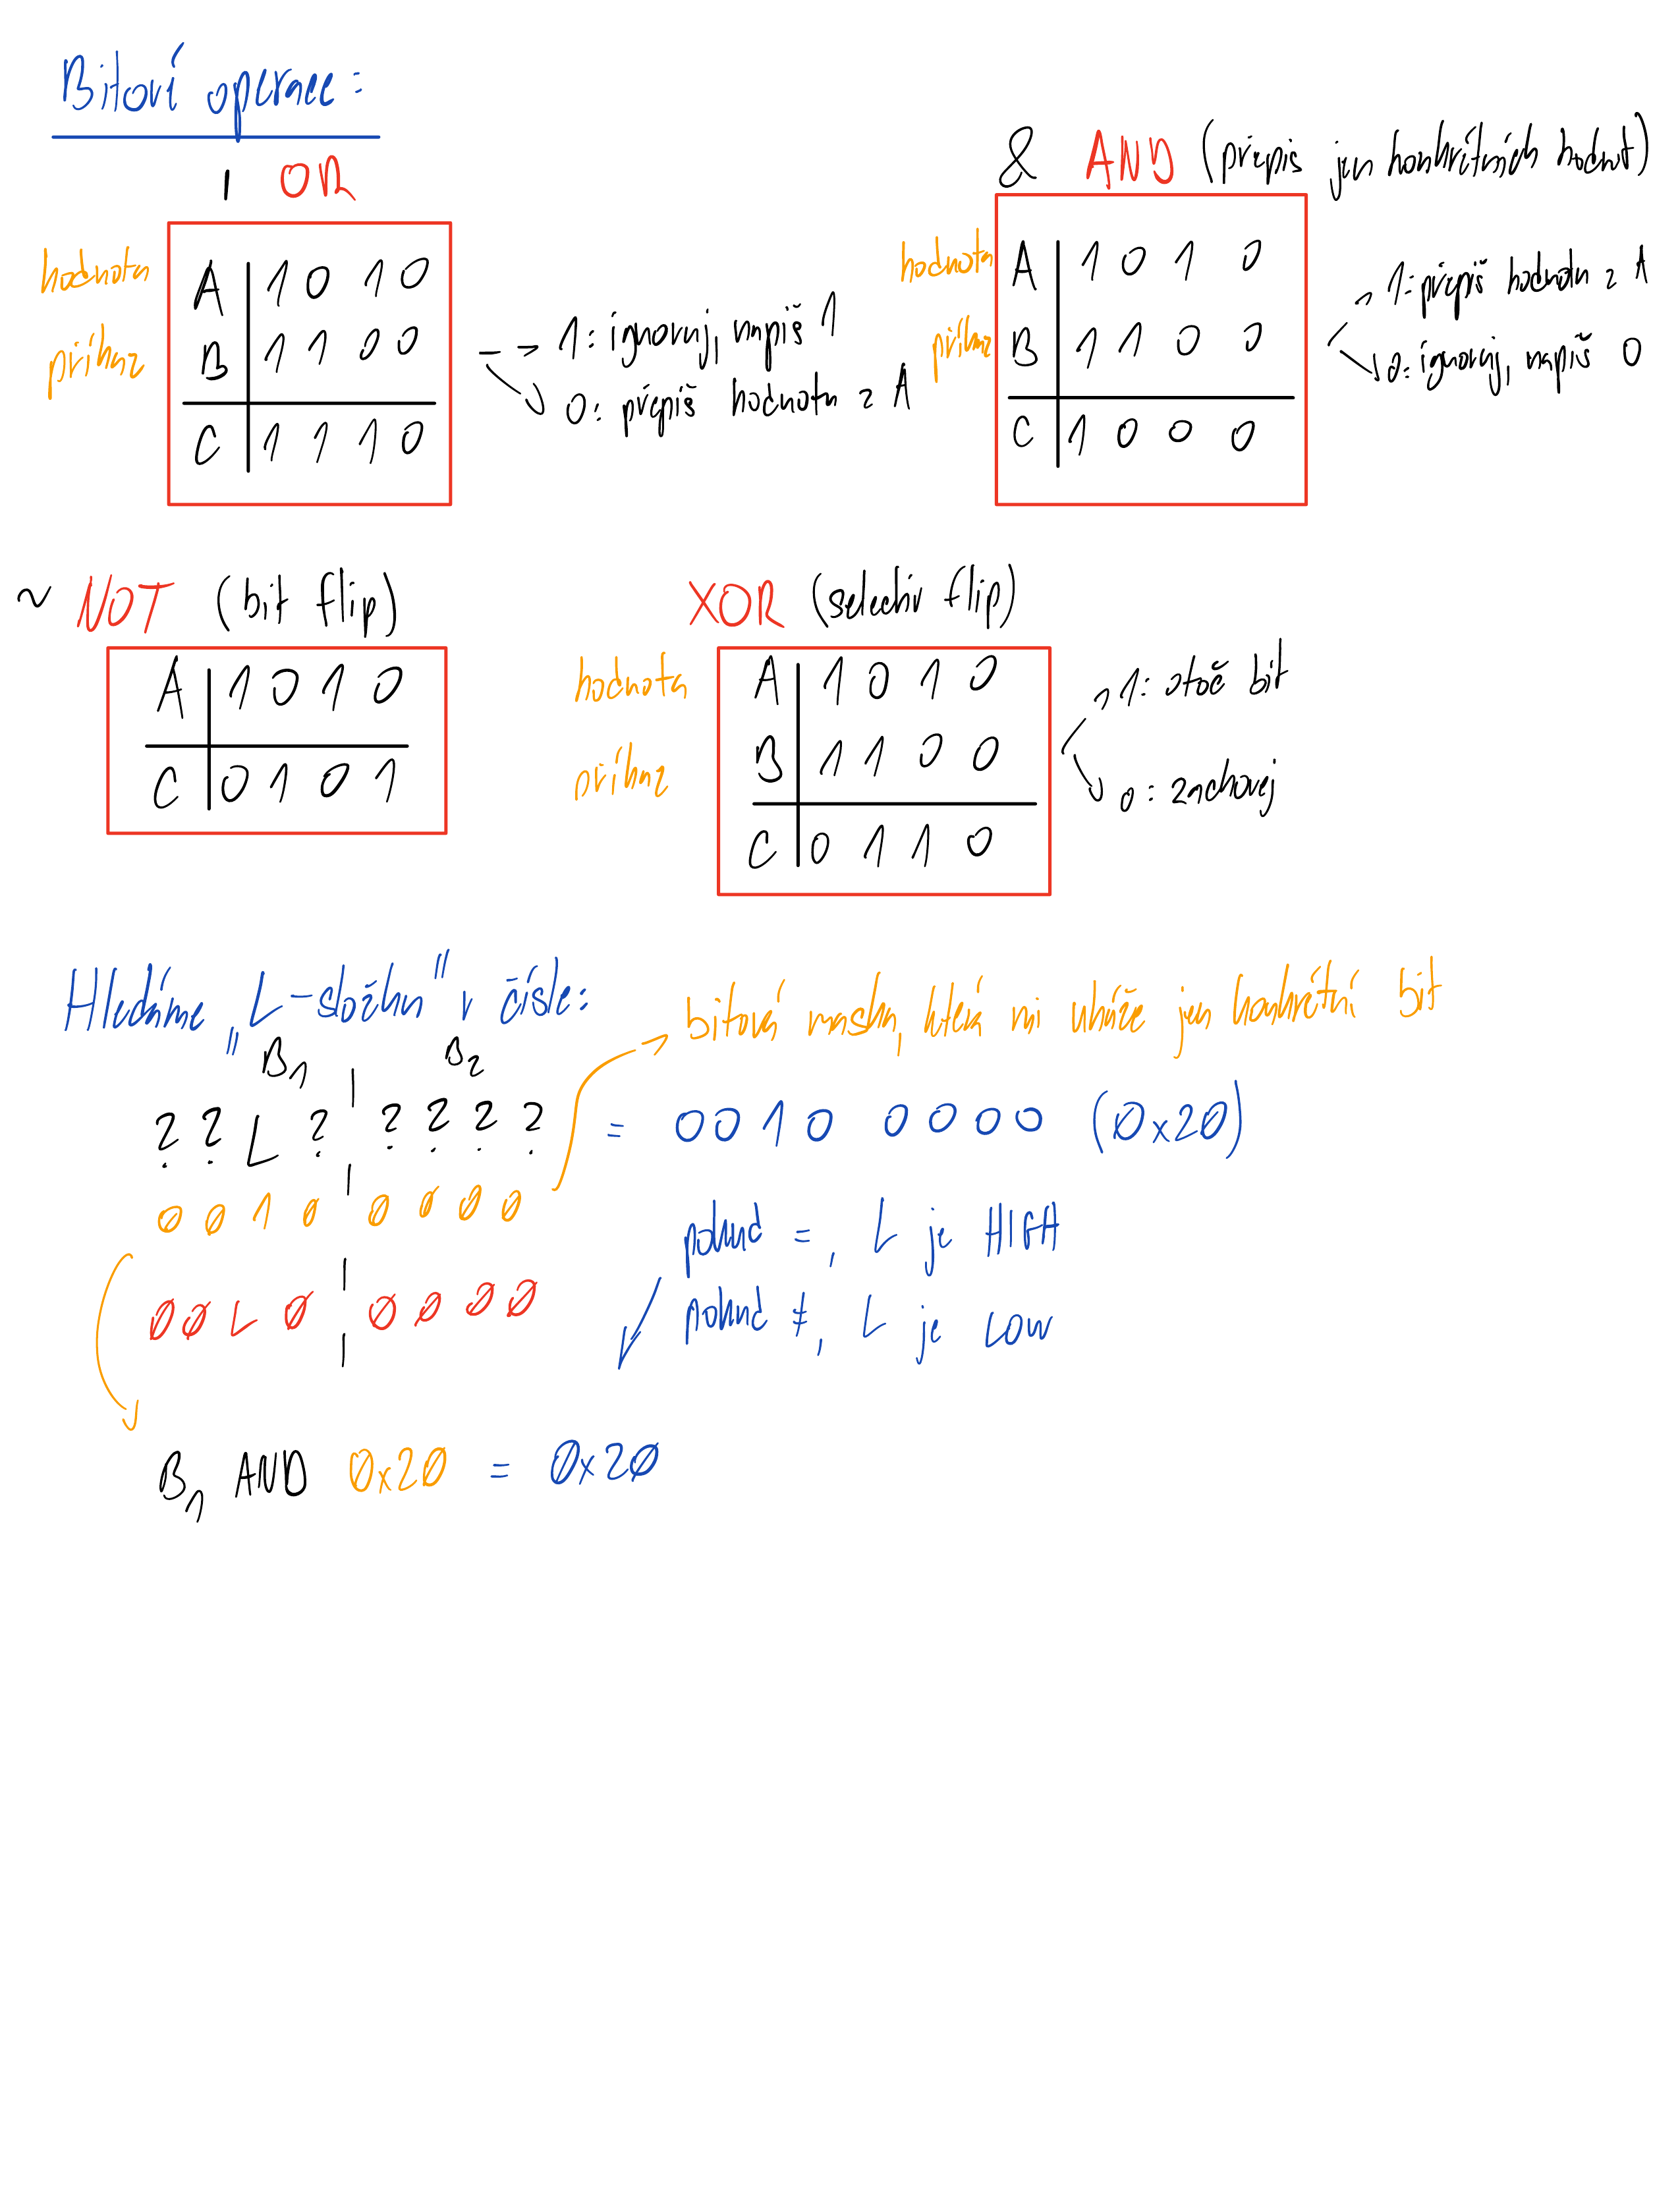 Bitové operace:
| OR
hodnota A | 1 0 1 0
příkaz B | 1 1 0 0
C | 1 1 1 0
1: ignoruj, napiš 1
0: přepiš hodnotu z A
& AND (přepis jen konkrétních hodnot)
hodnota A | 1 0 1 0
příkaz B | 1 1 0 0
C | 1 0 0 0
1: přepiš hodnotu z A
0: ignoruj, napiš 0
~ NOT (bit flip)
A | 1 0 1 0
C | 0 1 0 1
XOR (selectiv flip)
hodnota A | 1 0 1 0
příkaz B | 1 1 0 0
C | 0 1 1 0
1: otoč bit
0: zachovej
Hledáme "L-složku" v čísle:
bitová maska, která mi ukáže jen konkrétní bit
B1 | B2
? ? L ? | ? ? ? ? = 0 0 1 0 0 0 0 0 (0x20)
0 0 1 0 | 0 0 0 0
pokud =, L je HIGH
0 0 L 0 | 0 0 0 0
pokud ≠, L je LOW
B1 AND 0x20 = 0x20